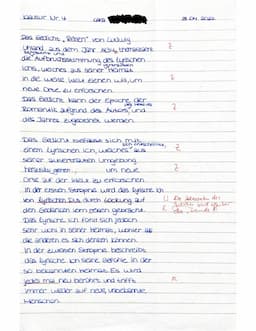 Klausur Nr. 4
28.04.2022
Das Gedicht „Reisen" von Ludwig
Uhland aus dem Jahr 1834, thematisiert
die Aufbruchsstimmung des lyrischen
Ichs, welches aus seiner Heimat
in die weite Welt ziehen will, um
neue Orte zu erforschen.
Das Gedicht kann der Epoche der
Romantik aufgrund des Autors und
des Jahres zugeordnet werden.
Das Gedicht befasst sich mit
einem lyrischen Ich, welches aus
seiner Umgebung
um neue
Orte auf der Welt zu erforschen.
In der ersten Strophe wird das lyrische Ich
von durch Lockung auf
den Gedanken vom gehen gebracht.
Das lyrische Ich fühlt sich jedoch
sehr wohl in seiner Heimat, wohler als
die anderen es sich denken können.
In der zweiten Strophe beschreibt
das lyrische Ich seine Gefühle in der
so bekannten Heimat. Es wird
jedes mal neu berührt und trifft
immer wieder auf neue, unbekannte
Menschen.